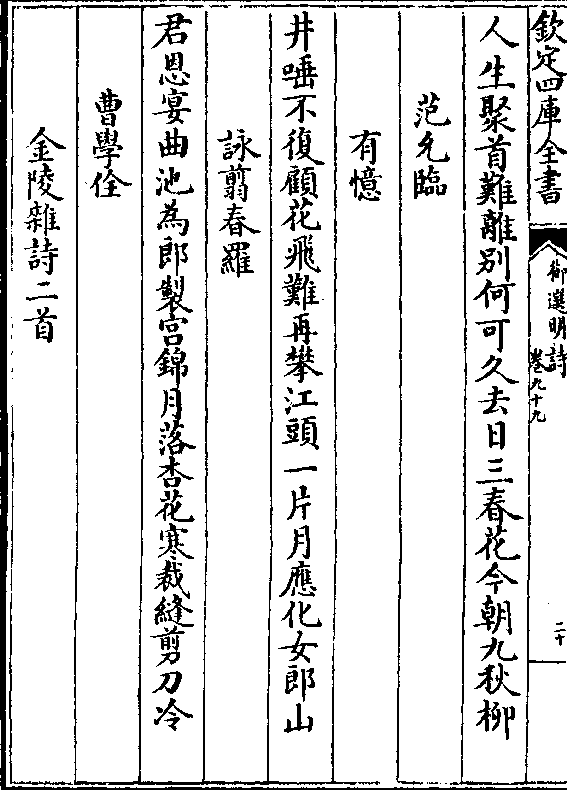 欽定四庫全書
御選明詩
卷九十九
二十
人生聚首難離別何可久去日三春花今朝九秋柳
范允臨
有憶
井唾不復顧花飛難再攀江頭一片月應化女郎山
詠翦春羅
君恩宴曲池為郎製宫錦月落杏花寒裁縫剪刀冷
曹學佺
金陵雜詩二首